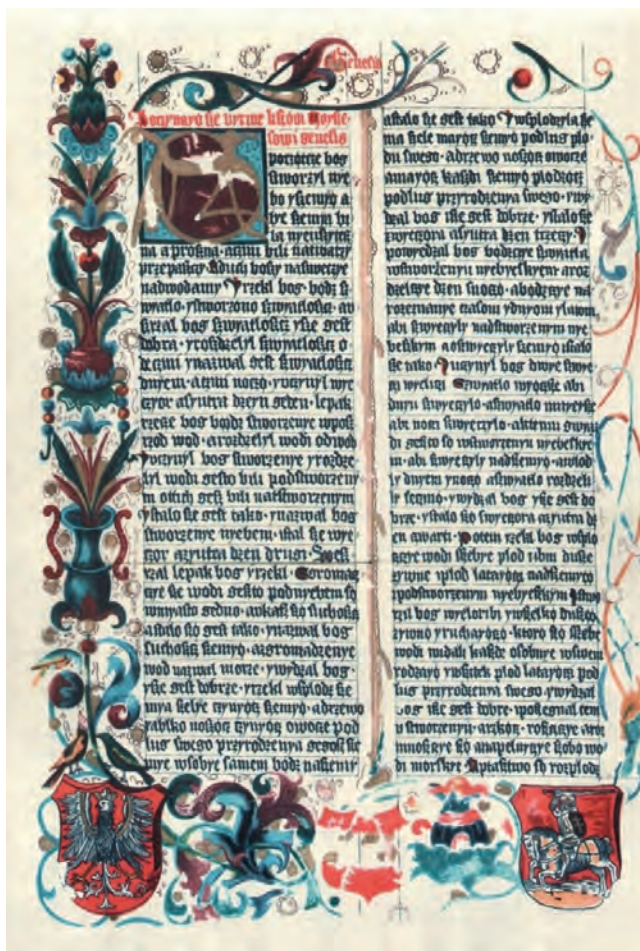 Genesis
Poczynayø sie pyrwe kxiøgi moyże
sowi genesis
początcze bog
stworzyl nye
bo y szemyø a
bye szemya bi
la nyeuzyteczna
na a prozna · a cmi bili na twarzy
przepasci · a duch bozy na swecye
nad wodamy · Yrzekl bog · bodz s
wyatlo · y stworzono szwyatloscz · a u
szrzal bog szwyatloscz ysze gest
dobra · y rosdzelyl szwyatloscz o
de cmi y nazwal gest szwyatloscz
dnyem · a cmi noczø · y uczynyl wye
czor a z yutra dzen geden · lepak
rzecze bog bødz stworzenye w pos
rzod wod · a rozdzelyl wodi od wod
y uczynyl bog stworzenye y rozdze
lyl wodi gesto bili pod stworzeny
m ottich gesz bili nad stworzenym
y stalo sie gest tako · y nazwal bog
stworzenye nyebem · i stal sie wye
czor a z yutra dzen drugi ·
rzal lepak bog y rzekl ·
cye sie wodi gesto pod nyebem sø
w myasto gedno · a ukasz sie suchosc
a stalo sø gest tako · y nazwal bog
suchoscz szemyø · a zgromadzenye
wod nazwal morze · y wydzal bog ·
ysze gest dobrze · y rzekl wsplodz sie
mya szelye czynyøcz szemyø · a drzewo
iablko noszøcz czynyøcz owocze pod
lug swego przyrodzenya gegosz sie
mye w sobye samem bødz na szemi
a stalo sie gest tako · Y wsplodzyla sie
mya szele mayøcz szemyø podlug plo
du swego · a drzewo noszøcz owocze
a mayøcz kaszdi szemyø plodzøcz
podlug przyrodzenya swego · y wy
dzal bog isze gest dobrze · y stalo sie
z wyeczora a z yutra dzen trzeczy ·
powyedzal bog bødzcye szwyatla
w stworzenyu nyebyeskyem a roz
dzelcye dzen s noczø · a bødzcye na
rozemanye czasom y dnyom y latom ·
abi szwyecyly nad stworzenym nye
beskym a oszwyeczyly szemyø · i stalo
sie tako · Y uczynyl bog dwye szwye
czi wyelicy · Szwyatlo wyøcsze abi
dnyu szwyeczylo · a szwyatlo mnyesze
abi noci szwyeczylo · a k temu gwyaz
di gesto so w stworzenyu nyebeske
m · abi szwyeczyly nad szemyø · a wlod
ly dnyem y noczø a szwyatlo rozdzeli
ly se cmø · y wydzal bog ysze gest do
brze · y stalo sø s wyeczora a z yutra dz
en czwarti · Potem rzekl bog wsplo
czcye wodi szebye plod ribni dusze
zywne y plod latayøczi nad szemyø
pod stworzenym nyebyeskym · y stwo
rzil bog wyeloribi y wszelkø duszø
zywnø y ruchayøczø · ktorø sø szebye
wodi widali kaszde osobnye w swem
rodzayu y wszitek plod latayøczi pod
lug przyrodzenya swego · y wydzal
bog isze gest dobre · y poszegnal tem
u stworzenyu · a rzkøcz · roscycye a roz
mnoszcye sø a napelnycye søbø wo
di morskye · a ptasztwo sø rozplodz